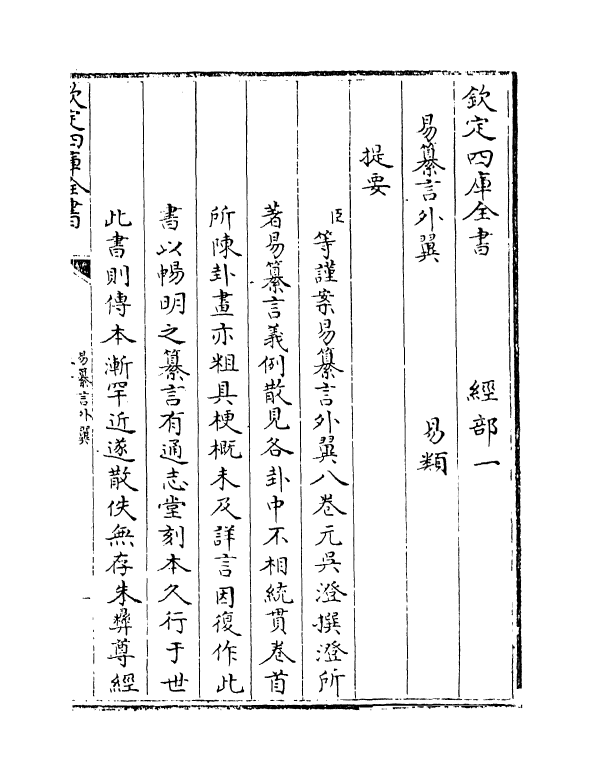 欽定四庫全書　經部一
易纂言外翼　易類
提要
臣等謹案易纂言外翼八卷元吳澄撰澄所
著易纂言義例散見各卦中不相統貫卷首
所陳卦畫亦粗具梗概未及詳言因復作此
書以暢明之纂言有通志堂刻本久行于世
此書則傳本漸罕近遂散佚無存朱彝尊經
欽定四庫全書
易纂言外翼
一